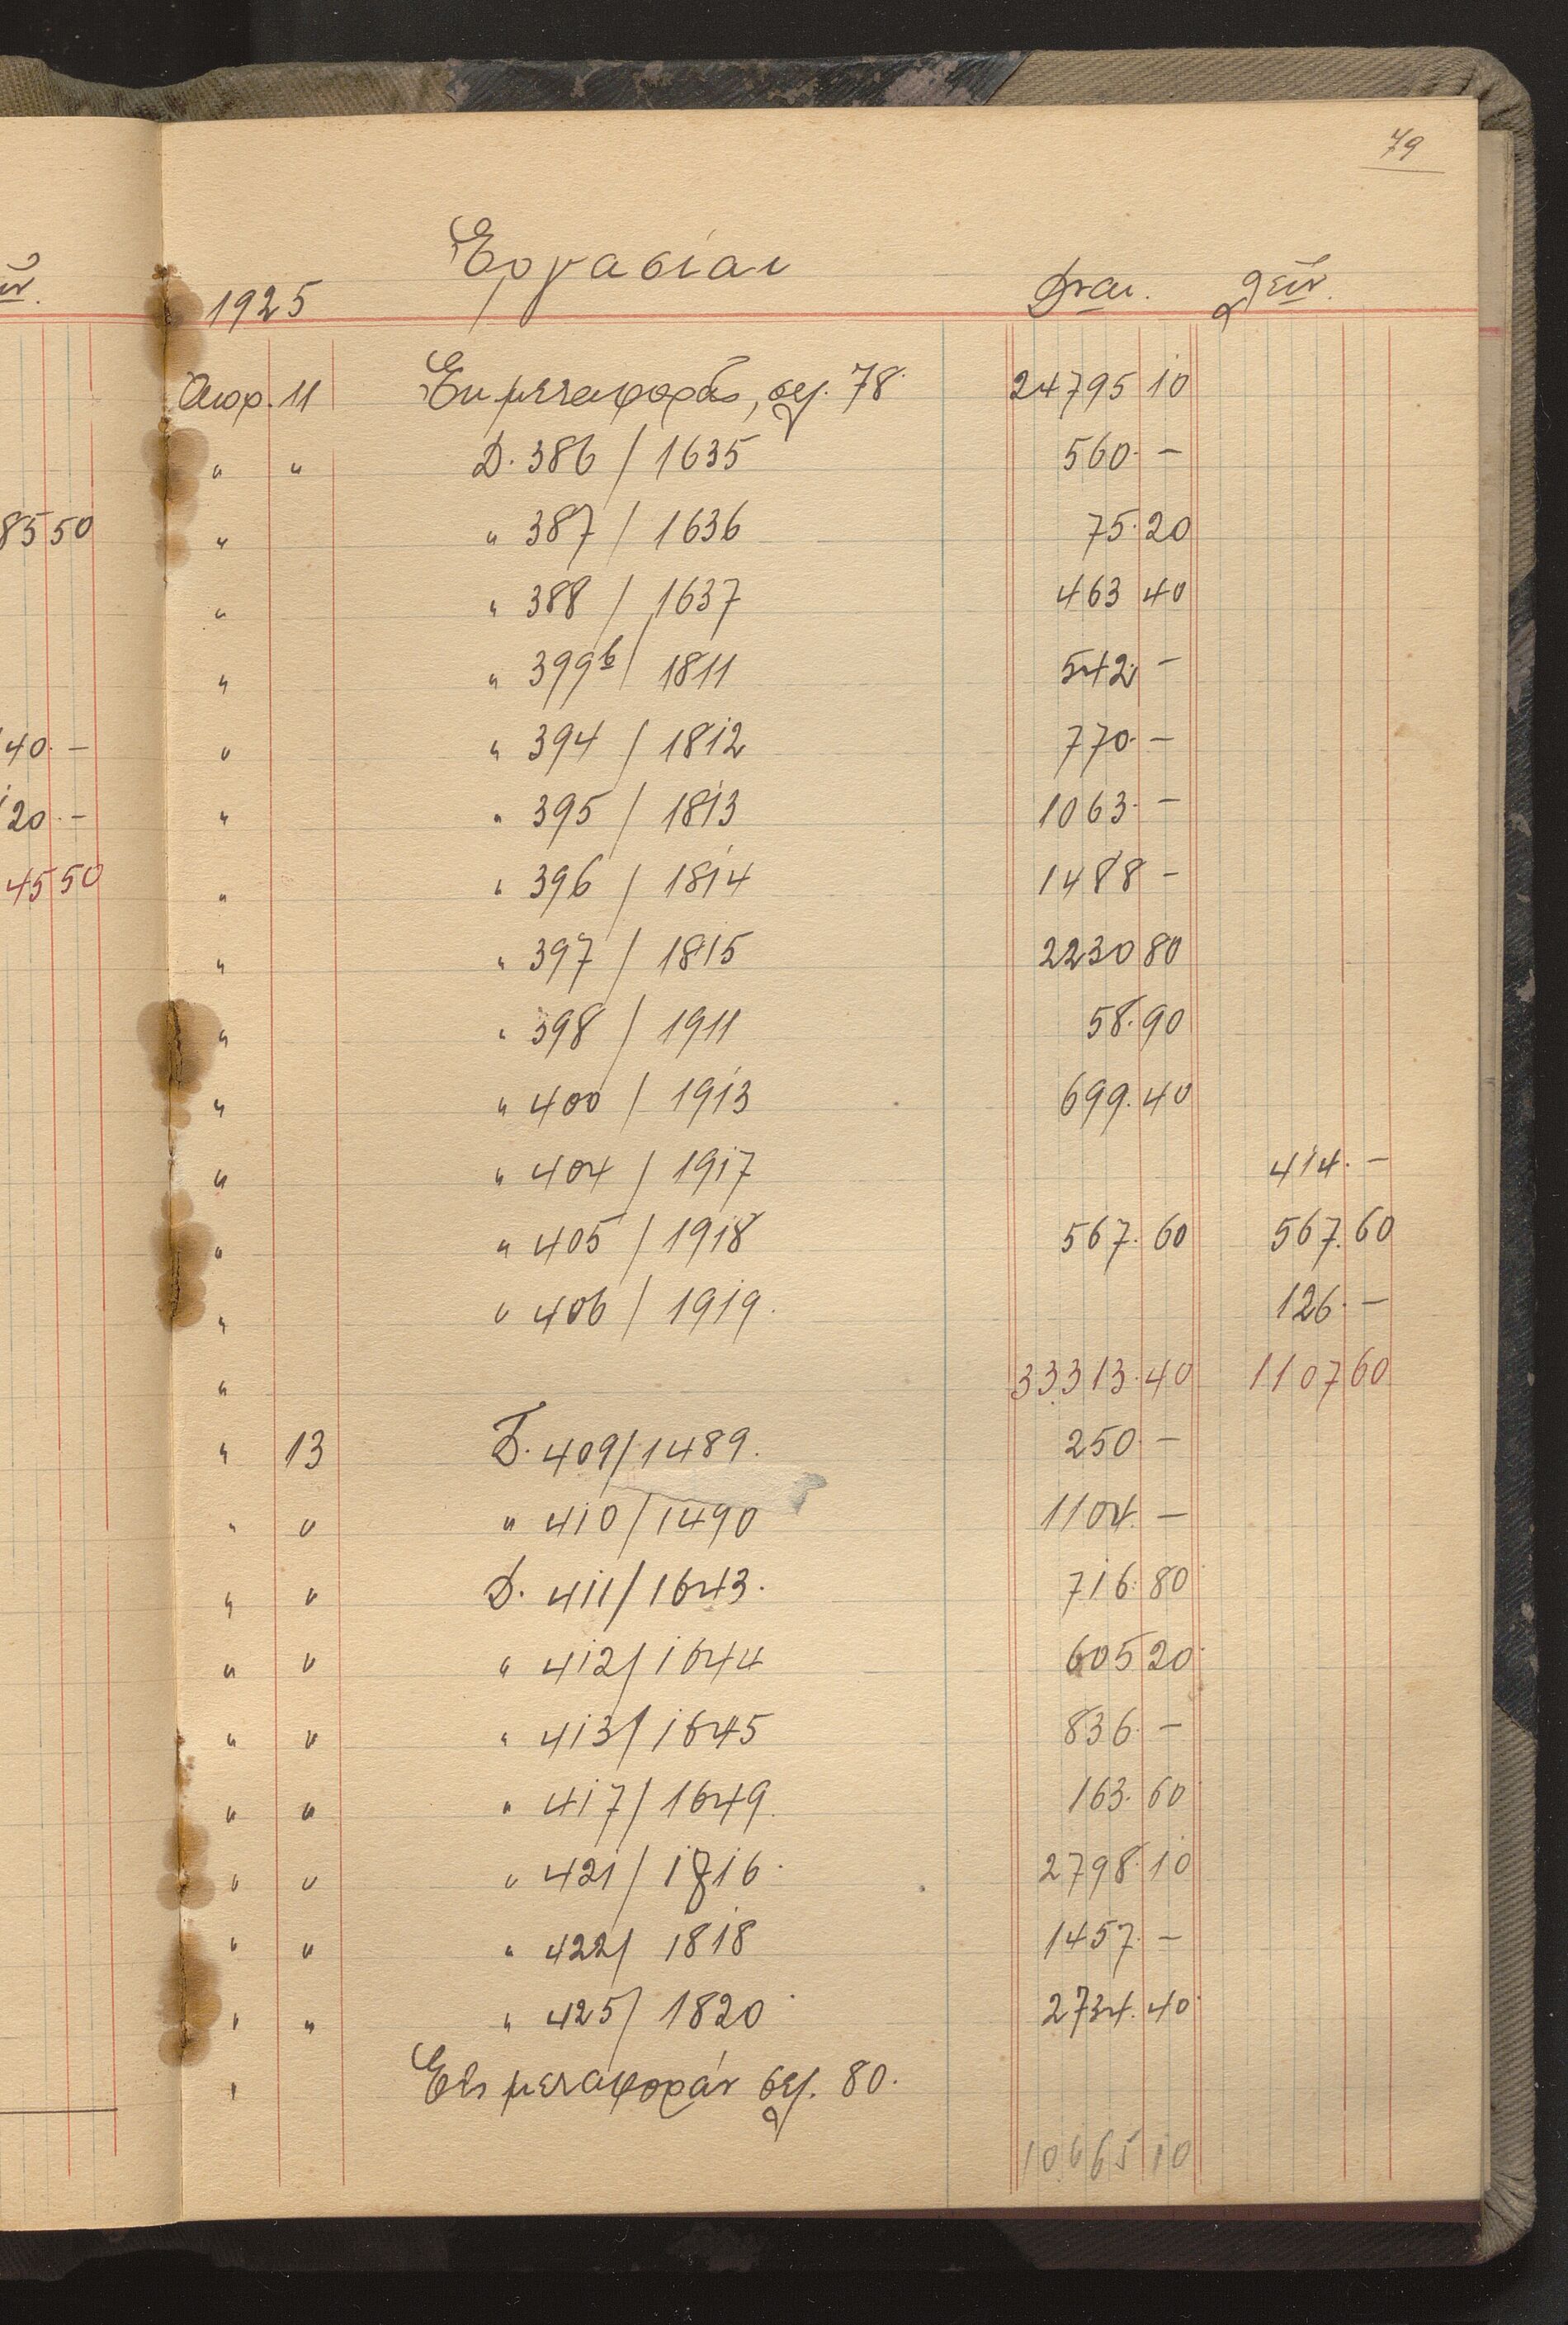 79
Εργασίαι
1925 Δναι. λειν.
Απρ. 11 Εκ μεταφοράς, σελ. 78 24795 10
" " D. 386 / 1635 560. —
" " 387 / 1636 75. 20
" " 388 / 1637 463 40
" " 399b / 1811 542. —
" " 394 / 1812 770. —
" " 395 / 1813 1063. —
" " 396 / 1814 1488 —
" " 397 / 1815 2230 80
" " 398 / 1911 58. 90
" " 400 / 1913 699. 40
" " 404 / 1917 414. —
" " 405 / 1918 567. 60 567. 60
" " 406 / 1919. 126. —
" 33313. 40 1107 60
" 13 409 / 1489. 250 —
" " " 410 / 1490 1104. —
" " D. 411 / 1643. 716. 80
" " " 412 / 1644 605 20
" " " 413 / 1645 836. —
" " " 417 / 1649. 163. 60
" " " 421 / 1816. 2798. 10
" " " 422 / 1818 1457. —
" " " 425 / 1820 2734. 40
" Εις μεταφοράν σελ. 80.
10665 10
85 50
40. —
20. —
45 50